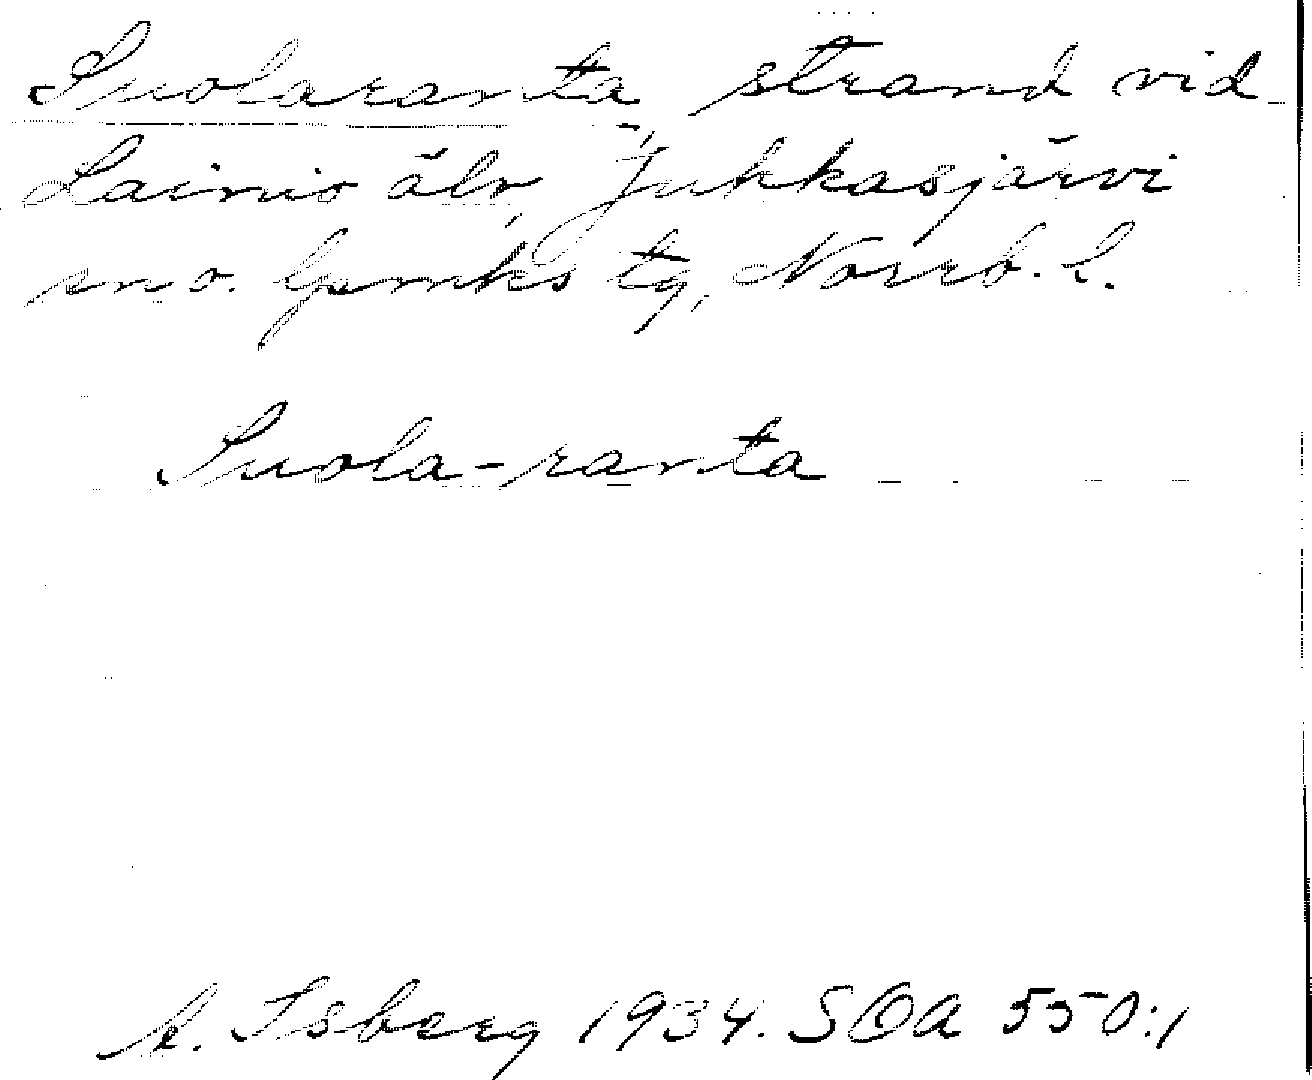 Suolaranta, strand vid
Lainio älv, Jukkasjärvi
sn o. lpmks tg, Norrb. l.
Suola-ranta
A. Isberg 1934. SOA 550:1